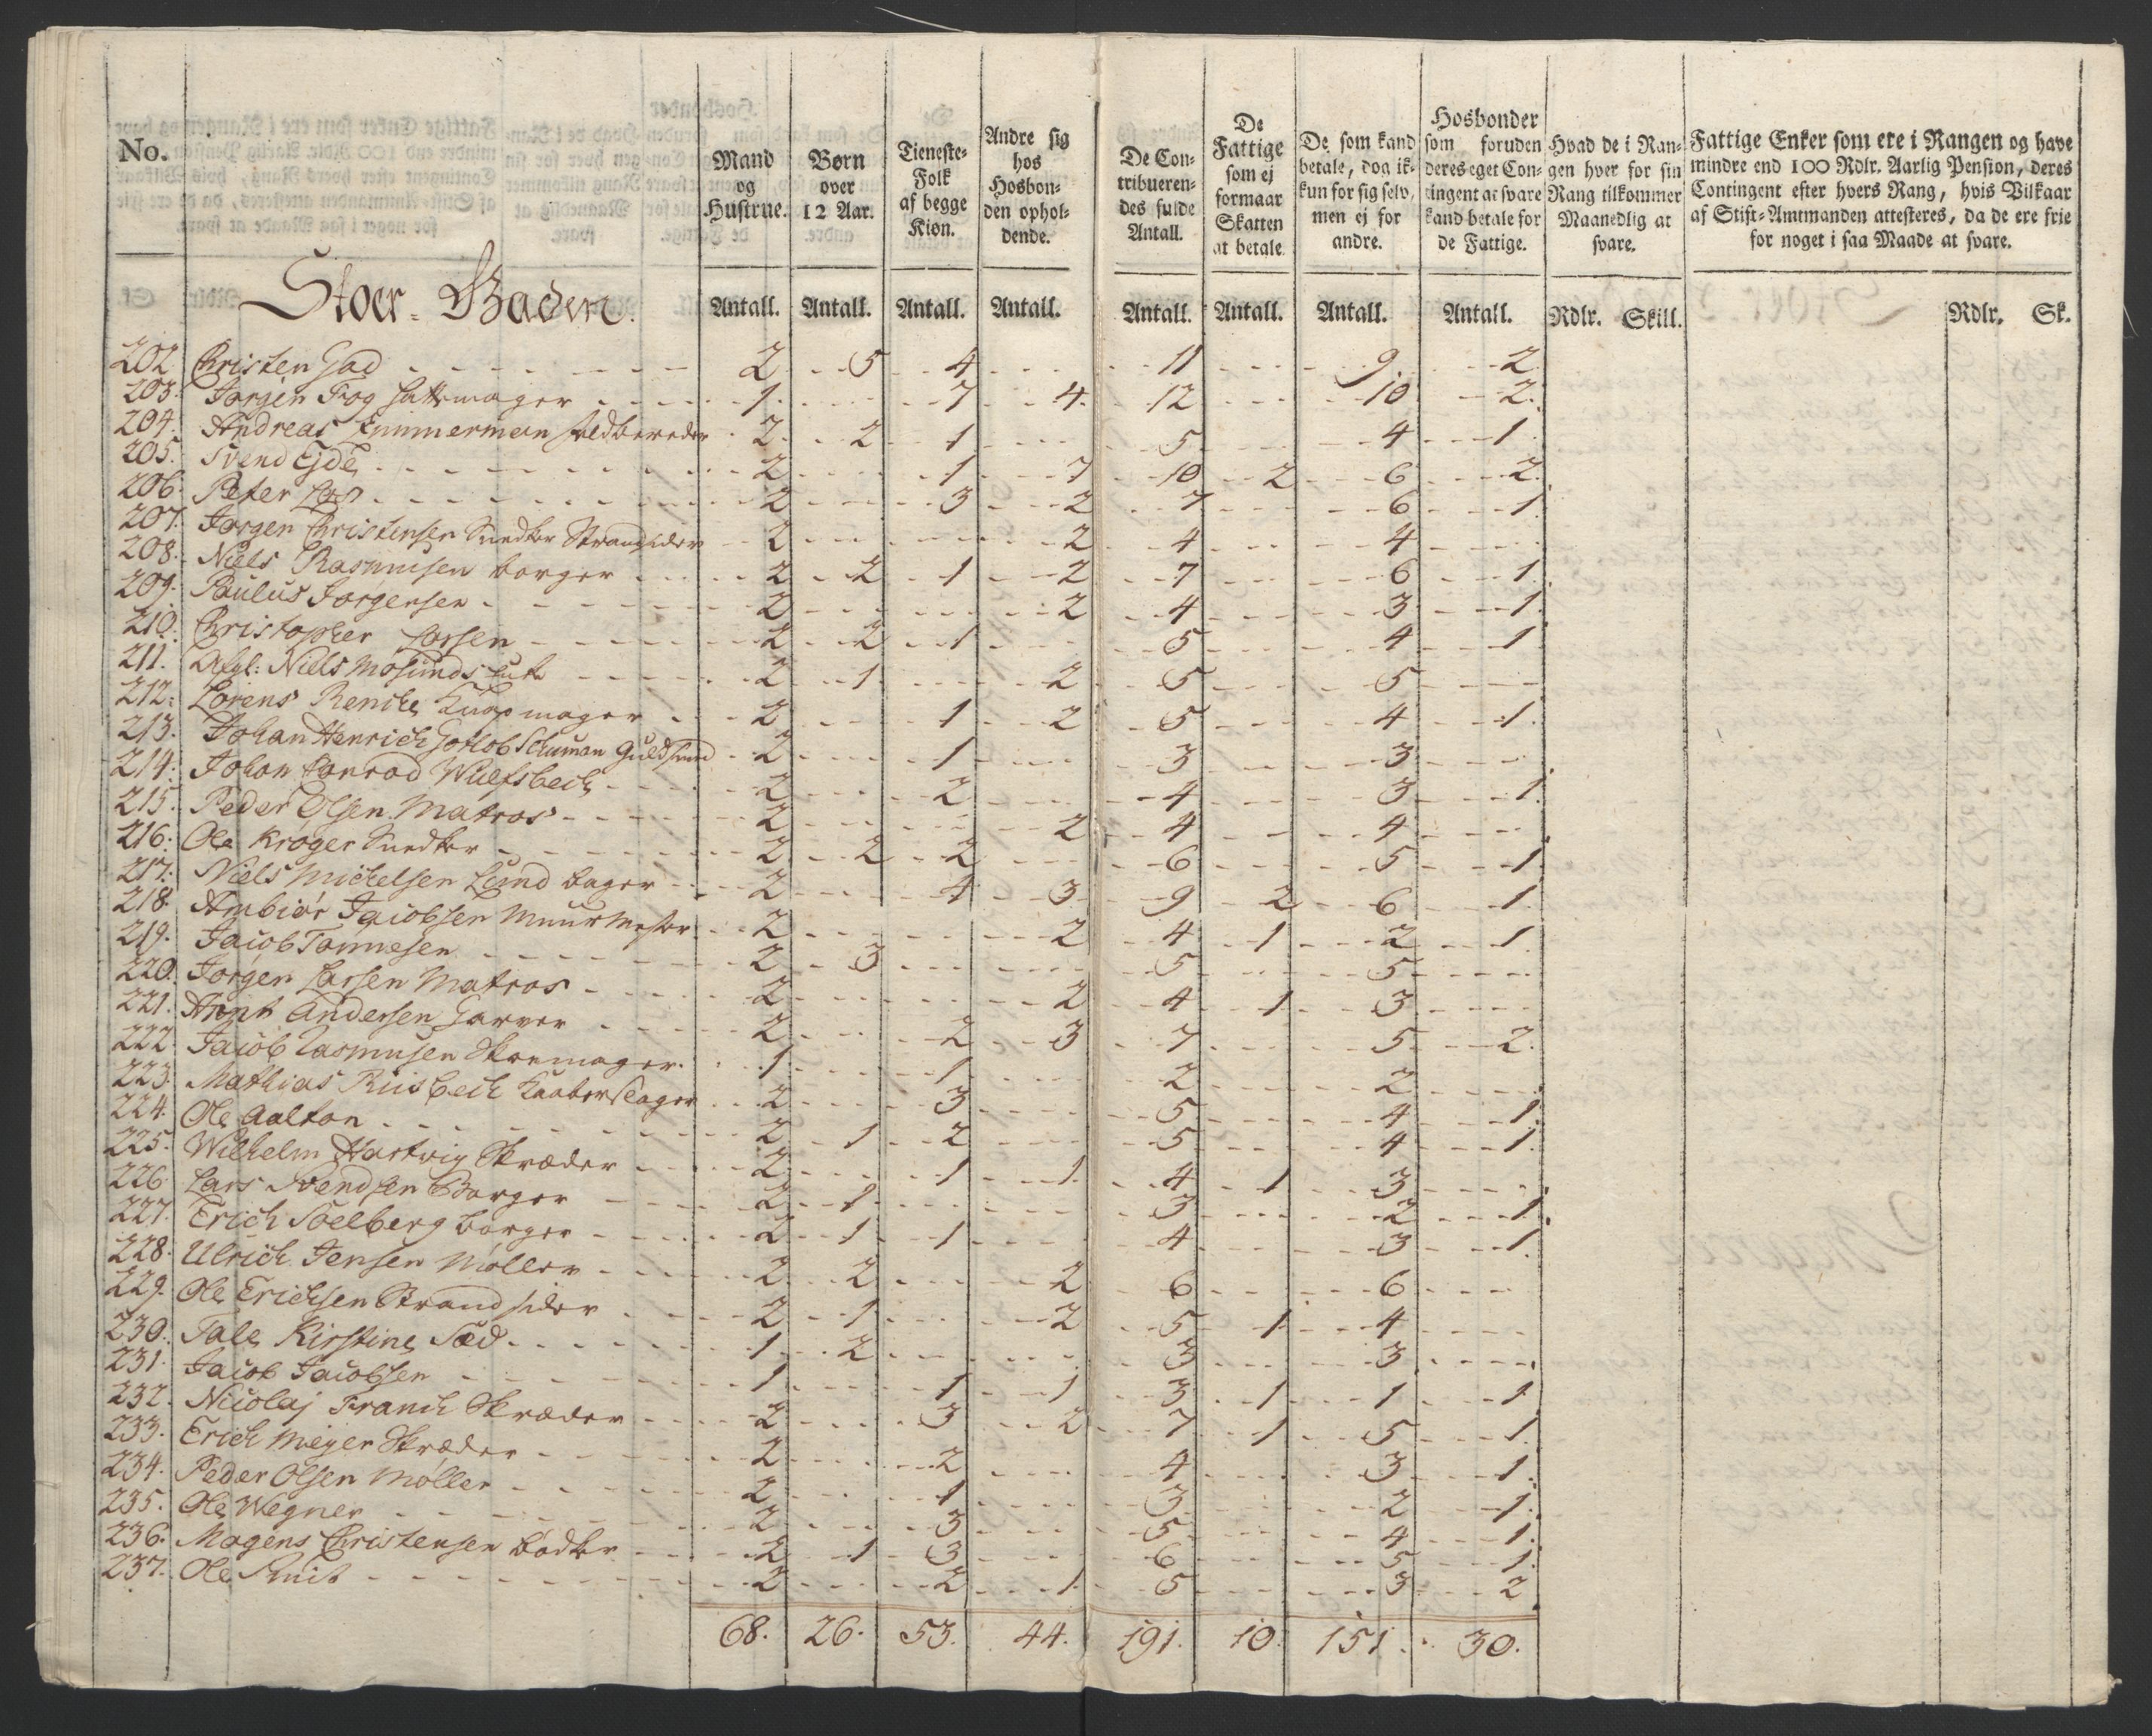 No.
Mand og Hustrue.
Børn over 12 Aar.
Tieneste-Folk af begge Kiøn.
Andre sig hos Hosbonden opholdende.
De Contribuerendes fulde Antall.
De Fattige som ej formaar Skatten at betale
De som kand betale, dog ikkun for sig selv, men ej for andre.
Hosbonder som foruden deres eget Contingent at svare kand betale for de Fattige.
Hvad de i Rangen hver for sin Rang tilkommer Maanedlig at svare.
Fattige Enker som ere i Rangen og have mindre end 100 Rdlr. Aarlig Pension, deres Contingent efter hvers Rang, hvis Vilkaar af Stift-Amtmanden attesteres, da de ere frie for noget i saa Maade at svare.
Stoer-Gaden.
Antall. Antall. Antall. Antall. Antall. Antall. Antall. Antall. Rdlr. Skill. Rdlr. Sk.
202 Christen Gad 2 5 4 11 9 2
203. Jørgen Fog Hattemager 1 7 4 12 10 2
204. Andreas Zimmerman Feldbereder 2 2 1 5 4 1
205. Svend Ejde 2 1 7 10 2 6 2
206. Peter 2 3 2 7 6 1
207. Jørgen Christensen Snedker Strandsider 2 2 4 4
208. Niels Rasmusen borger 2 2 1 2 7 6 1
209. Paulus Jørgensen 2 2 4 3 1
210. Christopher Larsen 2 2 1 5 4 1
211. Afgl: Niels Mosunds Enke 2 1 2 5 5
212. Lorens Reniche Knapmager 2 1 2 5 4 1
213. Johan Henrich Gotlob Schuman Guldsmed 2 1 3 3
214. Johan Conrad Wulfsbech 2 2 4 3 1
215. Peder Olsen Matros 2 2 4 4
216. Ole Krøger Snedker 2 2 2 6 5 1
217. Niels Michelsen Lund bager 2 4 3 9 2 6 1
218. Ambiør Jacobsen Muurmester 2 2 4 1 2 1
219. Jacob Tønnesen 2 3 5 5
220. Jørgen Larsen Matros 2 2 4 1 3
221. Arnt Andersen Garver 2 2 3 7 5 2
222. Jacob Rasmusen Skoemager 1 1 2 2
223. Mathias Riisbech Kaaberslager 2 3 5 4 1
224. Ole Aalton 2 1 2 5 4 1
225. Wilhelm Hartvig Skræder 2 1 1 4 1 3
226. Lars Svendsen Borger 2 1 3 2 1
227. Erich Soelberg borger 2 1 1 4 3 1
228. Ulrich Jensen Møller 2 2 2 6 6
229. Ole Erichsen Strandsider 2 1 2 5 1 4
230. Tale Kirstine Sæd 1 2 3 3
231. Jacob Jacobsen 1 1 1 3 1 1 1
232. Nicolaj Franch Skræder 2 3 2 7 1 5 1
233. Erich Meyer Skræder 2 2 4 3 1
234. Peder Olsen Møller 2 1 3 2 1
235. Ole Wegner 2 3 5 4 1
236. Mogens Christensen bødker 2 1 3 6 5 1
237. Ole Smit 2 2 1 5 3 2
68. 26. 53. 44. 191. 10. 151. 30.